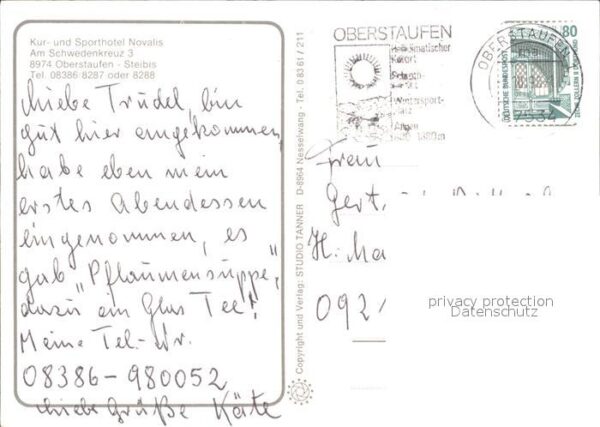 Kur- und Sporthotel Novalis
Am Schwedenkreuz 3
8974 Oberstaufen - Steibis
Tel. 08386 8287 oder 8288
Liebe Trudel, bin
gut hier angekommen,
habe eben mein
erstes Abendessen
eingenommen, es
gab "Pflaumensuppe,"
dazu ein Glas Tee!
Meine Tel.-Nr.
08386-980052
Liebe Grüße Käte
Copyright und Verlag: STUDIO TANNER D-8964 Nesselwang - Tel. 0 83 61 / 211
OBERSTAUFEN
Heilklimatischer
Kurort
Schroth-
Wintersport-
platz
OBERSTAUFEN
80
DEUTSCHE BUNDESPOST
Frau
Gert
H. Ma
092
privacy protection
Datenschutz